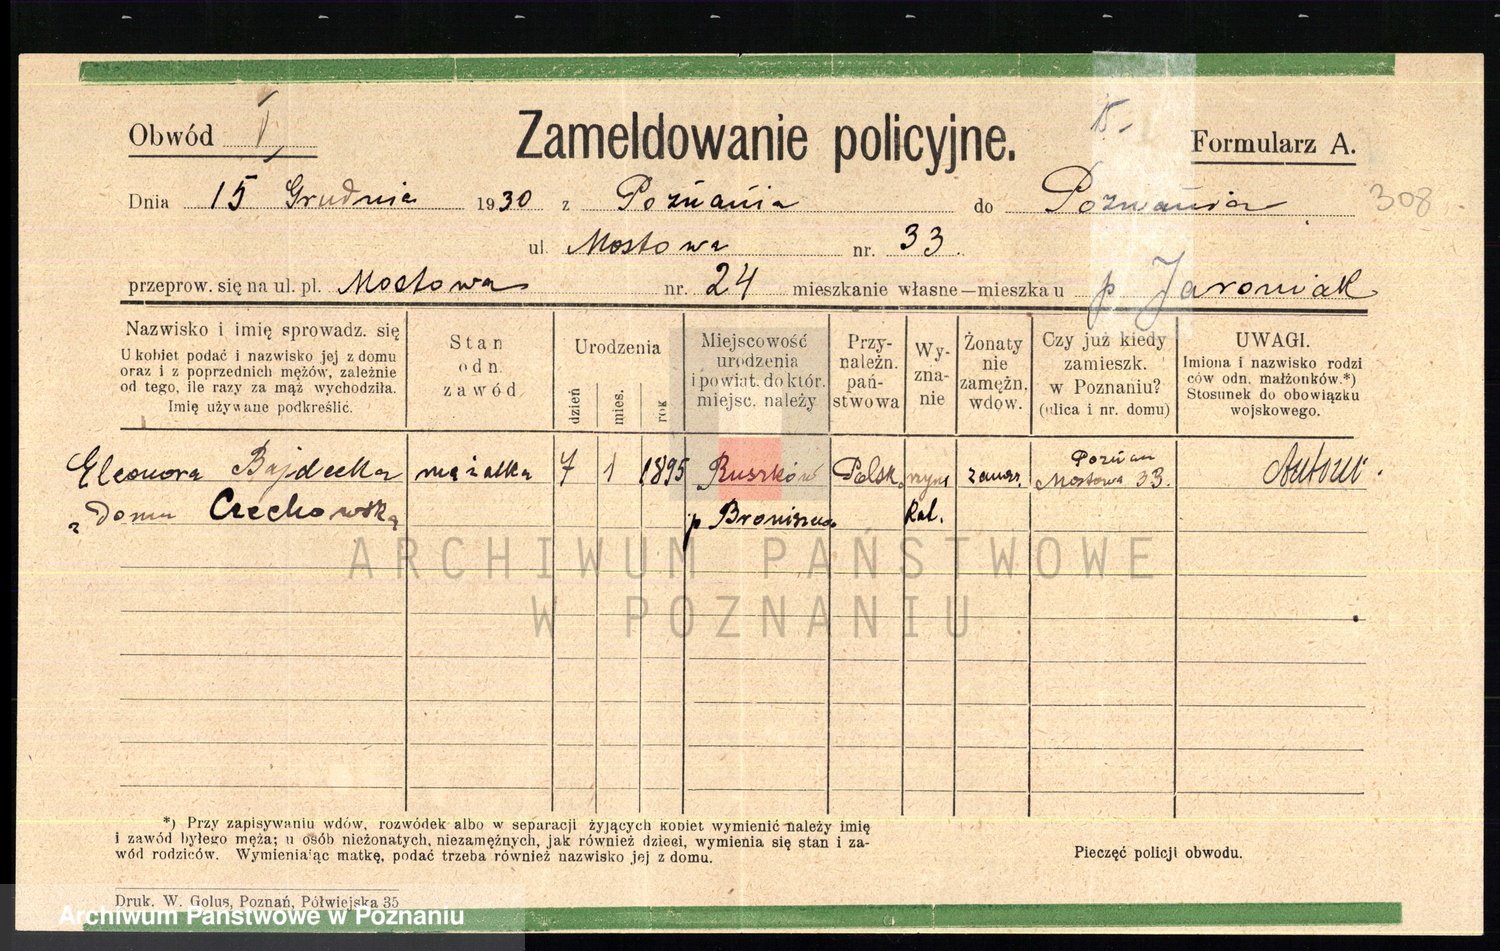 Obwód V,
Zameldowanie policyjne.
15.-
Formularz A.
Dnia 15 Grudnia 1930 z Poznania do Poznania
308.-
ul. Mostowa nr. 33.
przeprow. się na ul. pl. Mostowa nr. 24 mieszkanie własne—mieszka u p. Jaroniak
Nazwisko i imię sprowadz. się
U kobiet podać i nazwisko jej z domu
oraz i z poprzednich mężów, zależnie
od tego, ile razy za mąż wychodziła.
Imię używane podkreślić.
Stan
odn.
zawód
Urodzenia
dzień
mies.
rok
Miejscowość
urodzenia
i powiat. do któr.
miejsc. należy
Przy-
należn.
pań-
stwowa
Wy-
zna-
nie
Żonaty
nie
zamężn.
wdów.
Czy już kiedy
zamieszk.
w Poznaniu?
(ulica i nr. domu)
UWAGI.
Imiona i nazwisko rodzi
ców odn. małżonków.*)
Stosunek do obowiązku
wojskowego.
Eleonora Bajdecka mężatka 7 1 1895 Ruszków Polsk. rzym zamęż. Poznań
Mostowa 33. Antoni.
z Domu Czechowska p Broniszewo kat.
ARCHIWUM PAŃSTWOWE
W POZNANIU
*) Przy zapisywaniu wdów, rozwódek albo w separacji żyjących kobiet wymienić należy imię
i zawód byłego męża; u osób nieżonatych, niezamężnych, jak również dzieci, wymienia się stan i za-
wód rodziców. Wymieniając matkę, podać trzeba również nazwisko jej z domu.
Pieczęć policji obwodu.
Druk. W. Golus, Poznań, Półwiejska 35
Archiwum Państwowe w Poznaniu